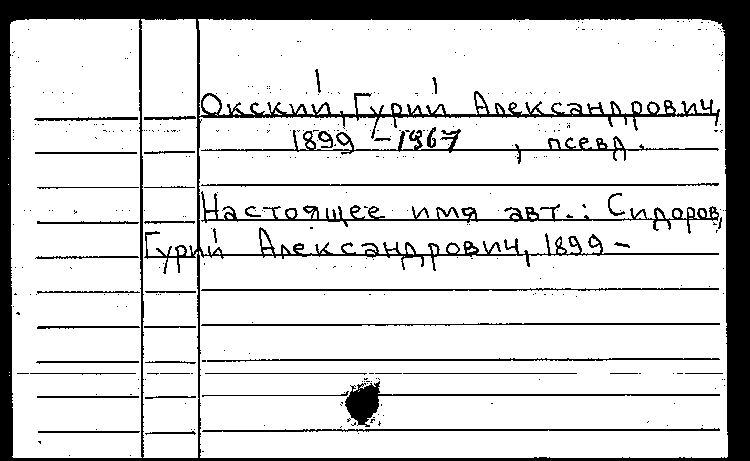 Окский, Гурий Александрович,
1899 - 1967 , псевд.
Настоящее имя авт.: Сидоров,
Гурий Александрович, 1899 -